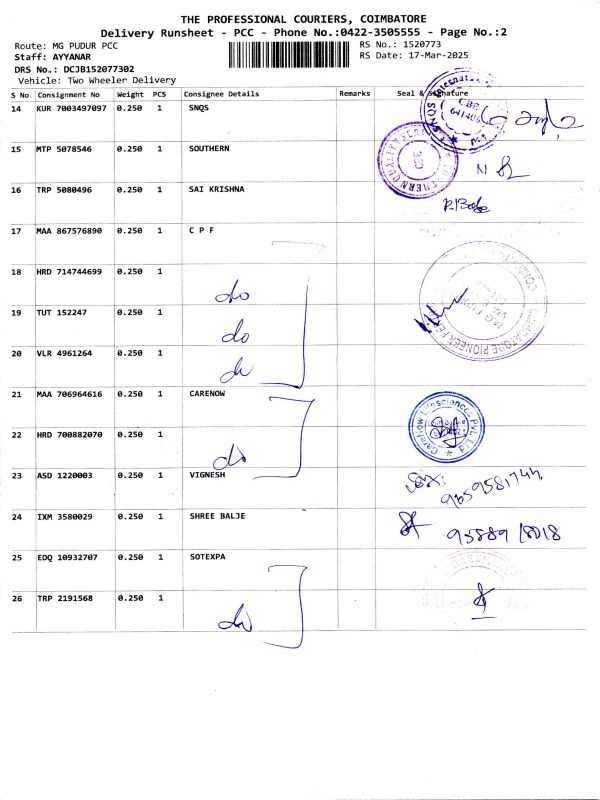 THE PROFESSIONAL COURIERS, COIMBATORE
Delivery Runsheet - PCC - Phone No.:0422-3505555 - Page No.:2
Route: MG PUDUR PCC
RS No.: 1520773
Staff: AYYANAR
RS Date: 17-Mar-2025
DRS No.: DCJB152077302
Vehicle: Two Wheeler Delivery
S No Consignment No Weight PCS Consignee Details Remarks Seal & Signature
14 KUR 7003497097 0.250 1 SNQS
15 MTP 5078546 0.250 1 SOUTHERN
16 TRP 5080496 0.250 1 SAI KRISHNA
17 MAA 867576890 0.250 1 C P F
18 HRD 714744699 0.250 1
do
19 TUT 152247 0.250 1
do
20 VLR 4961264 0.250 1
do
21 MAA 706964616 0.250 1 CARENOW
CareNow Lifesciences Pvt. Ltd
22 HRD 700882070 0.250 1
do
23 ASD 1220003 0.250 1 VIGNESH
9659581744
24 IXM 3580029 0.250 1 SHREE BALJE
25 EDQ 10932707 0.250 1 SOTEXPA
26 TRP 2191568 0.250 1
do